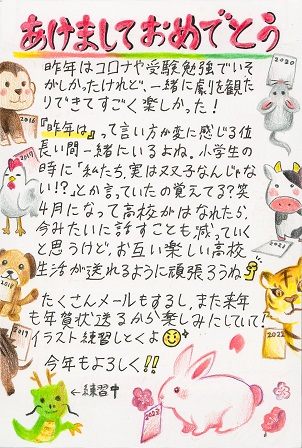 あけましておめでとう
昨年はコロナや受験勉強でいそ
がしかったけれど、一緒に劇を観た
りできてすごく楽しかった！
『昨年は』って言い方が変に感じる位
長い間一緒にいるよね。小学生の
時に「私たち、実は双子なんじゃな
い！？」とか言っていたの覚えてる？笑
4月になって高校がはなれたら、
今みたいに話すことも減っていく
と思うけど、お互い楽しい高校
生活が送れるように頑張ろうね
たくさんメールもするし、また来年
も年賀状送るから楽しみにしていて！
イラスト練習しとくよ
今年もよろしく!!
←練習中
2016
2017
2018
2019
2020
2021
2022
2023